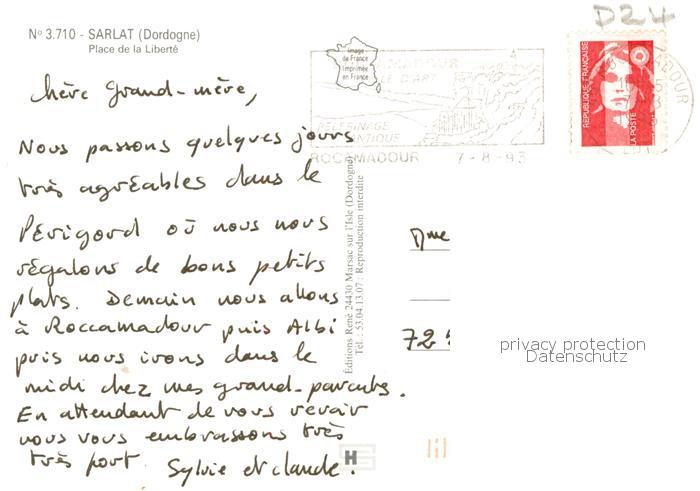 D24
Nº 3.710 - SARLAT (Dordogne)
Place de la Liberté
Image
de France
Imprimée
en France
ROCAMADOUR 7-8-93
RÉPUBLIQUE FRANÇAISE
LA POSTE
chère Grand-mère,
Nous passons quelques jours
très agréables dans le
Périgord où nous nous
régalons de bons petits
plats. Demain nous allons
à Roccamadour puis Albi
puis nous irons dans le
midi chez mes grand-parents.
En attendant de vous revoir
nous vous embrassons très
très fort. Sylvie et claude.
Éditions René 24430 Marsac sur l'Isle (Dordogne)
Tél. : 53.04.13.07 : Reproduction interdite
Mme
72
privacy protection
Datenschutz